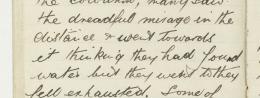 the column, many saw
the dreadful mirage in the
distance & went towards
it thinking they had found
water but they went to they
fell exhausted. Some of